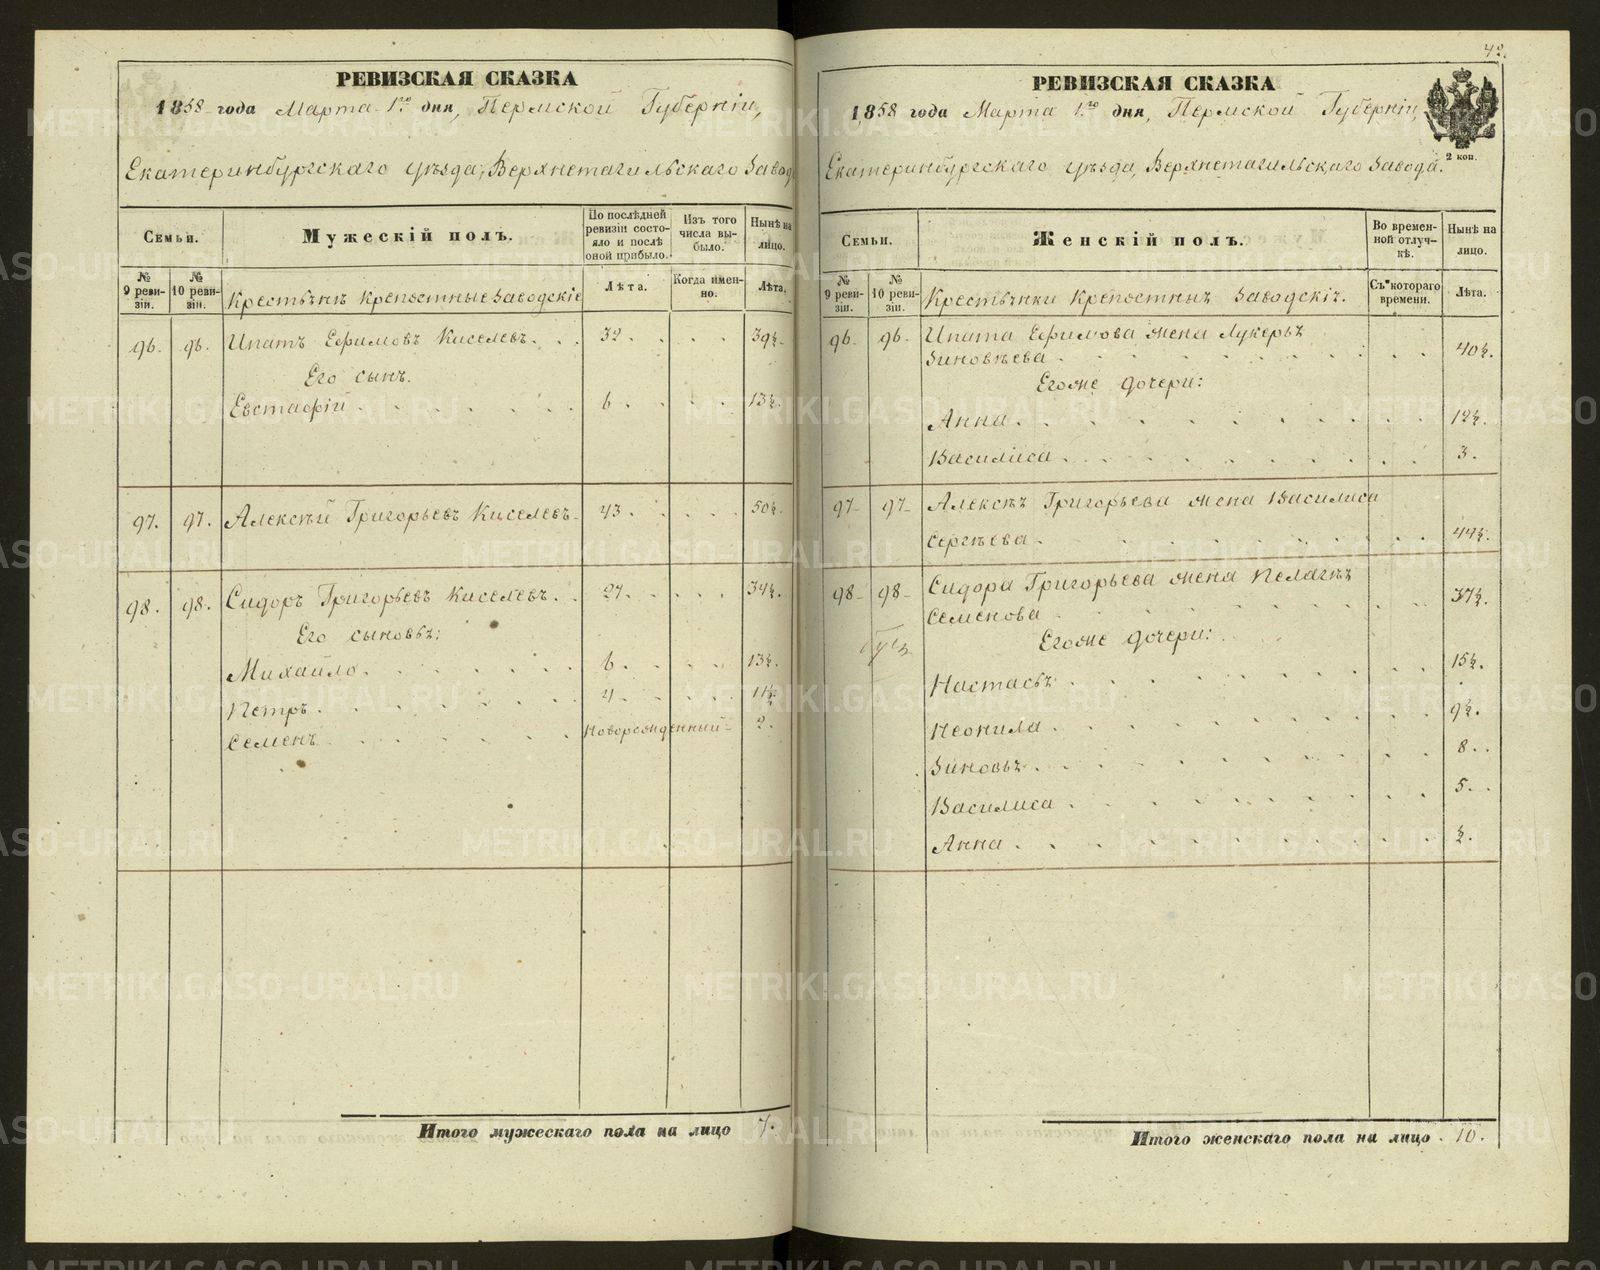 РЕВИЗСКАЯ СКАЗКА
1858 года Марта 1го дня, Пермской Губерніи,
Екатеринбургскаго уѣзда, Верхнетагильскаго Завода
Семьи.
Мужескій полъ.
По послѣдней ревизіи состояло и послѣ оной прибыло.
Изъ того числа выбыло.
Нынѣ на лицо.
№ 9 ревизіи.
№ 10 ревизіи.
Крестьяне Крепостные Заводскіе
Лѣта.
Когда именно.
Лѣта.
96. 96. Ипатъ Ефимовъ Киселевъ. 32. 39½.
Его сынъ.
Евстафій 6. 13½.
97. 97. Алексѣй Григорьевъ Киселевъ 43. 50½.
98. 98. Сидоръ Григорьевъ Киселевъ. 27. 34½.
Его сыновья:
Михайло 6. 13½.
Петръ. 4. 11½.
Семенъ Новорожденный 2.
Итого мужескаго пола на лицо 7.
42.
РЕВИЗСКАЯ СКАЗКА
1858 года Марта 1го дня, Пермской Губерніи,
2 коп.
Екатеринбургскаго уѣзда, Верхнетагильскаго Завода.
Семьи.
Женскій полъ.
Во временной отлучкѣ.
Нынѣ на лицо.
№ 9 ревизіи.
№ 10 ревизіи.
Крестьянки Крепостныя Заводскія.
Съ котораго времени.
Лѣта.
96. 96. Ипата Ефимова жена Лукерья
Зиновьева 40½.
Егоже дочери:
Анна. 12½.
Василиса 3.
97 97 Алексѣя Григорьева жена Василиса
Сергѣева 44½.
98 98 Сидора Григорьева жена Пелагѣя
Семенова 37½.
Егоже дочери:
Настасья 15½.
Неонила 9½.
Зиновья 8.
Василиса 5.
Анна ½.
Итого женскаго пола на лицо 10.
METRIKI.GASO-URAL.RU